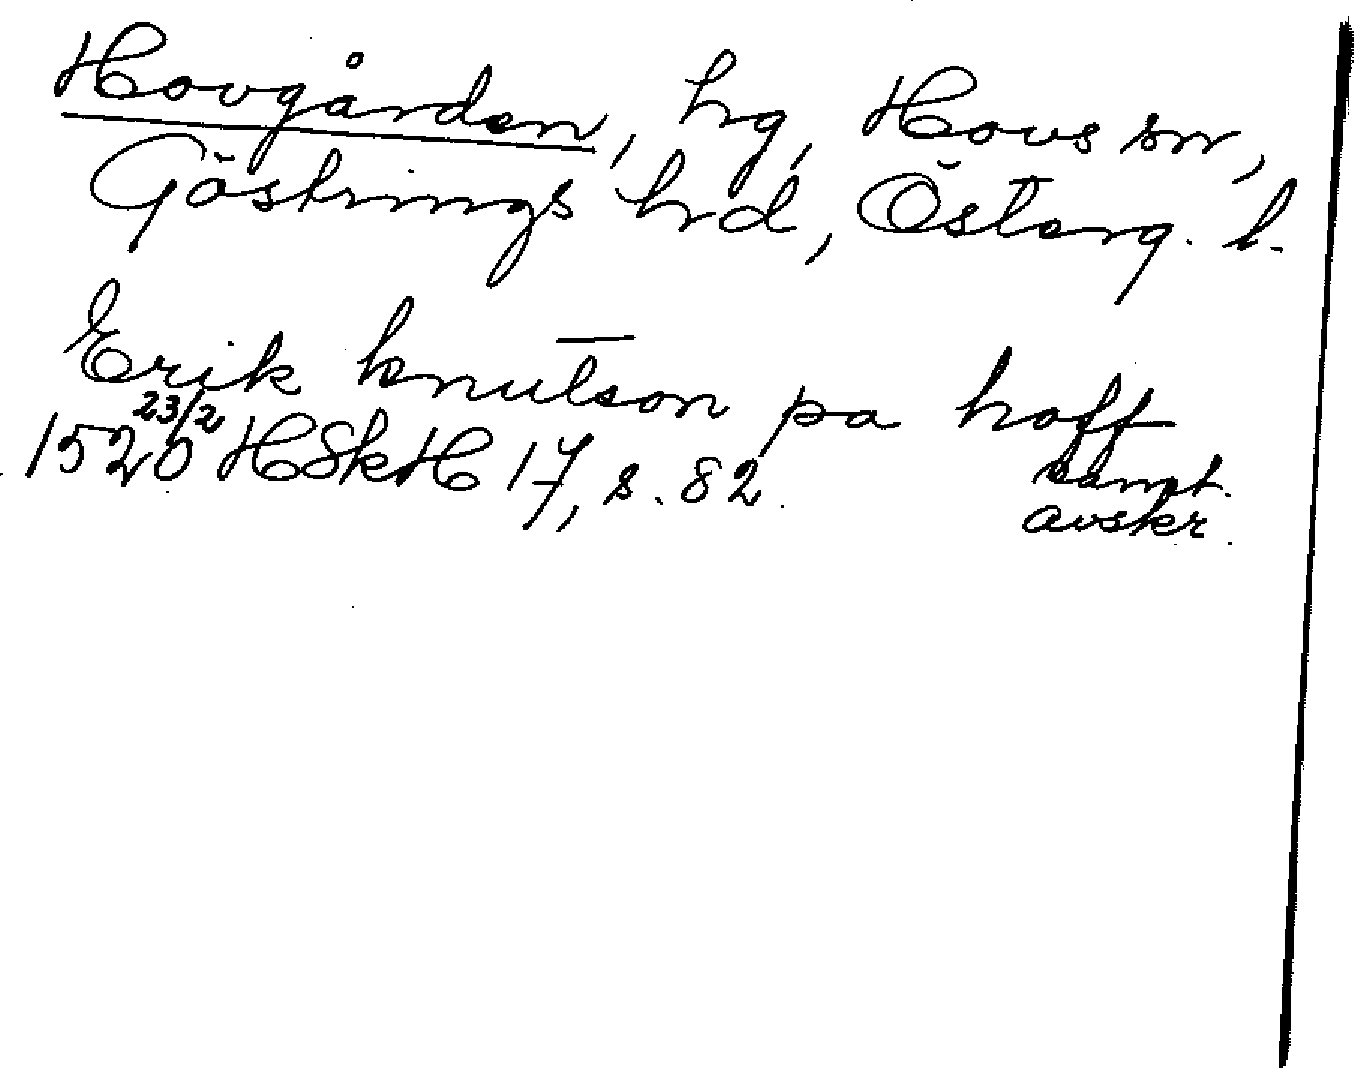 Hovgården, hg, Hovs sn,
Göstrings hrd, Österg. l.
Erik knutson pa hoff
1520 23/2 HSkH 17, s. 82 samt.
avskr.